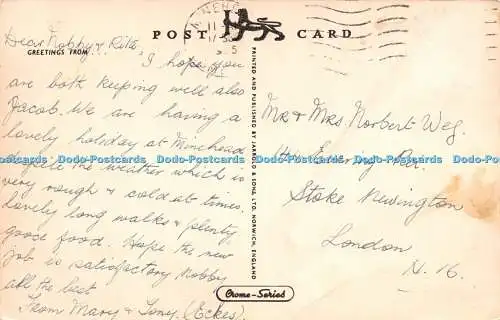 POST CARD
Dear Nobby & Rita,
GREETINGS FROM...
I hope you
are both keeping well also
Jacob. We are having a
lovely holiday at Minehead
the weather which is
very rough & cold at times.
lovely long walks & plenty
good food. Hope the new
job is satisfactory Nobby
all the best
From Mary & Tony (Eckes).
PRINTED AND PUBLISHED BY JARROLD & SONS, LTD. NORWICH, ENGLAND
Mr & Mrs Norbert Weg.
Rd.
Stoke Newington
London
N. 16.
Crome-Series
Dodo-Postcards Dodo-Postcards Dodo-Postcards Dodo-Postcards Dodo-Postcards